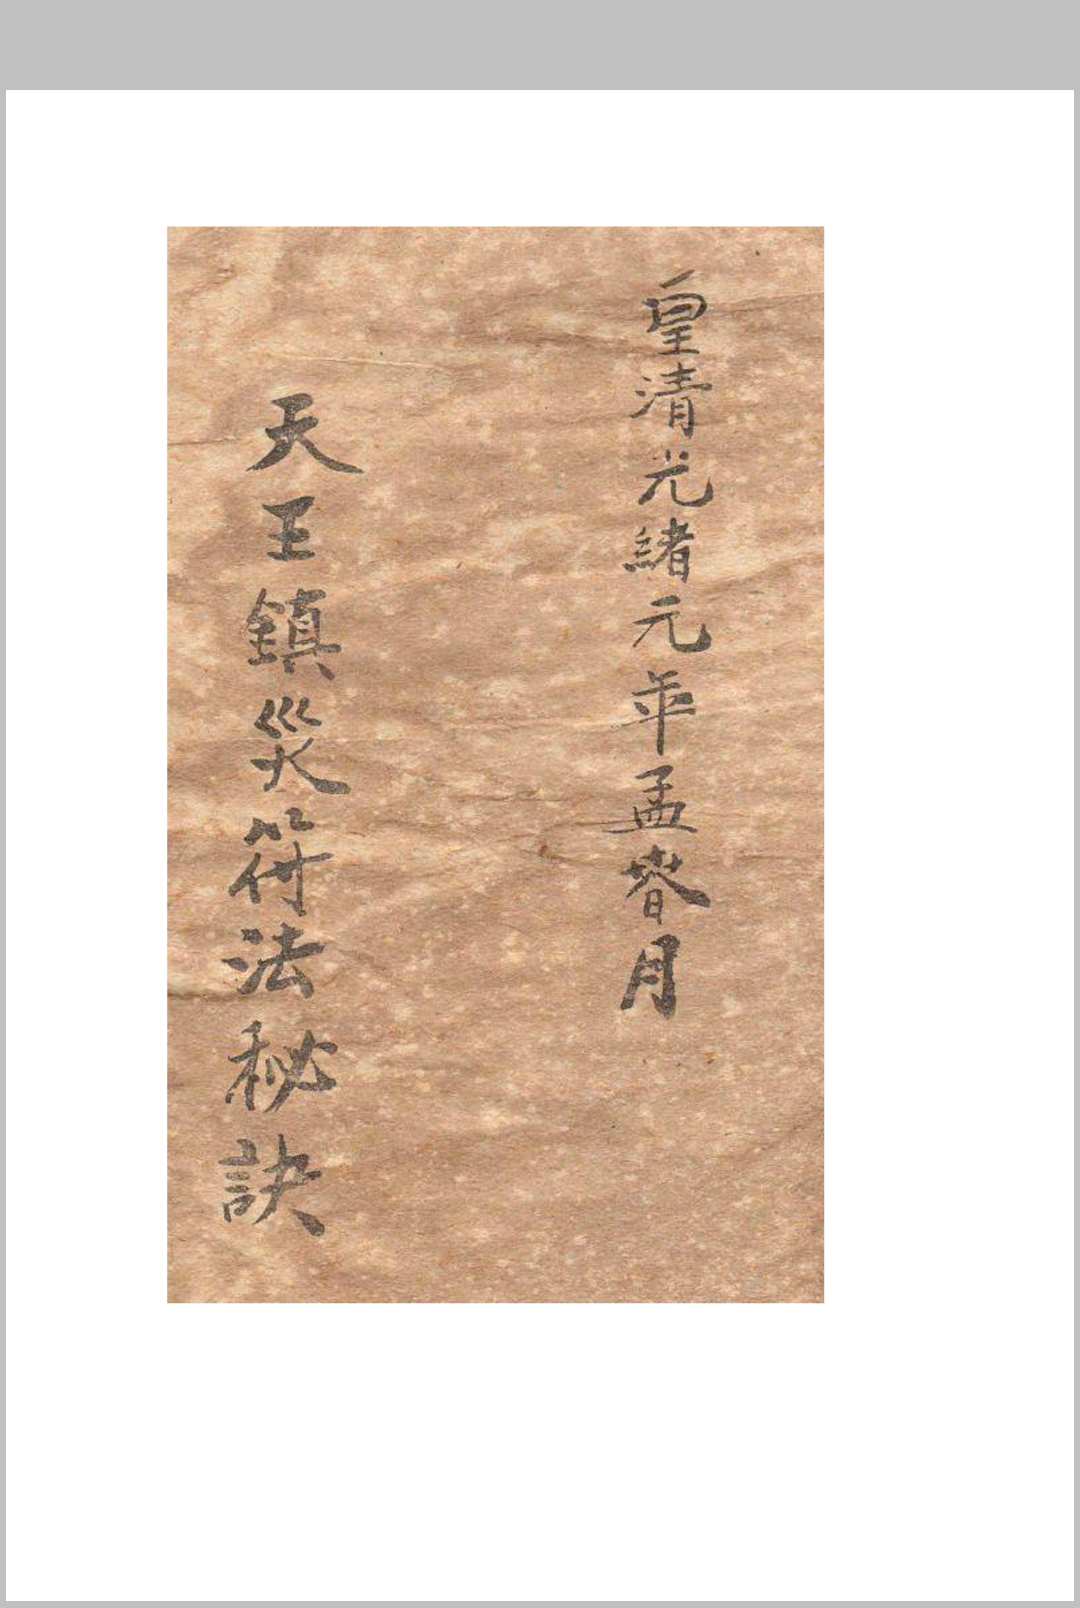 皇清光緒元年孟春月
天王鎮災符法秘訣